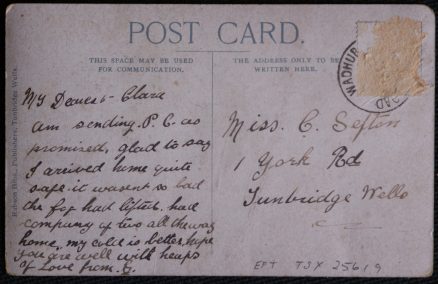 POST CARD.
THIS SPACE MAY BE USED
FOR COMMUNICATION.
THE ADDRESS ONLY TO BE
WRITTEN HERE.
WADHUR
My Dearest Clara
am sending P.C. as
promised, glad to say
I arrived home quite
safe it wasent so bad
the fog had lifted. had
company of two all the way
home, my cold is better, hope
you are well with heaps
of Love from
Miss. C. Sefton
1 York Rd
Tunbridge Wells
EPT TSX 25619
Publishers, Tunbridge Wells.